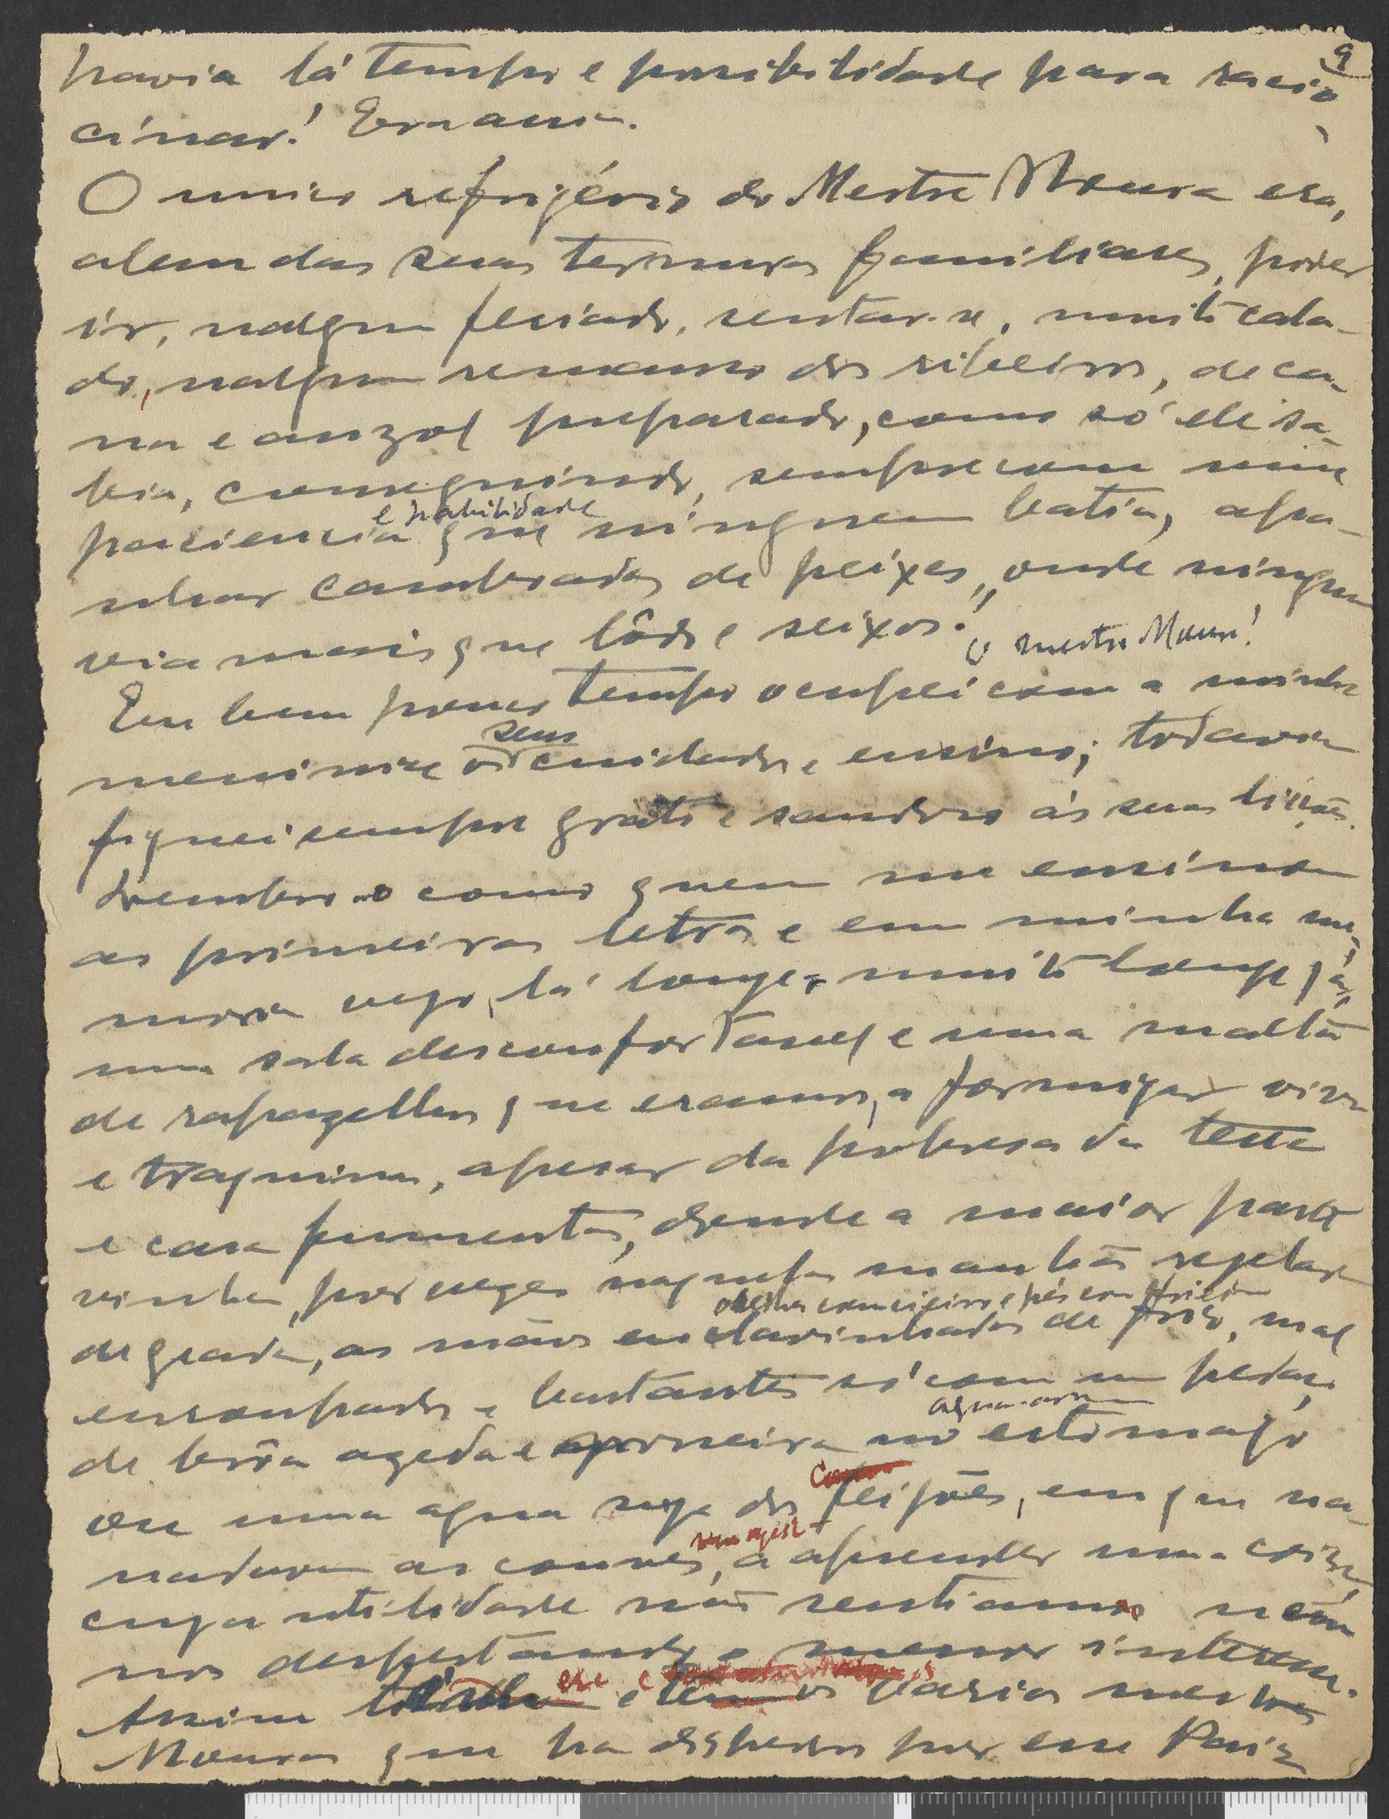 9
havia lá tempo e possibilidade para racio-
cinar! Era assim.
O unico refrigério do Mestre Moura era,
alem das suas ternuras familiares, poder
ir, nalgum feriado, sentar-se, muito cala-
do, nalgum remanso dos ribeiros, de ca-
na e anzol preparado, como só ele sa-
bia, conseguindo, sempre com uma
e habilidade
paciencia que ninguem batia, apa-
nhar cambradas de peixes, onde ninguem
via mais que lôdo e seixos.
O mestre Moura!
Eu bem pouco tempo ocupei com a minha
seus
meninice os cuidados e ensino; todavia
fiquei sempre grato e saudoso ás suas lições.
Lembro-o como quem me ensinou
as primeiras letras e em minha me-
moria vejo, lá longe, muito longe já,
uma sala desconfortavel e uma malta
de rapazelhos que eramos, a formigar viva
e traquina, apesar da pobresa da
e casa fumenta, donde a maior parte
vinha, por vezes naquelas manhãs regeladas
de geada, as mãos enclavinhadas de frio, mal
enroupados e bastantes só com um pedaço
de brôa azeda e no estomago
ou uma agua suja dos feijões, em que na-
sem azeite
nadavam as couves, a aprender uma coisa,
cuja utilidade não sentiamos nem
nos despertando o menor interesse.
Assim e os varios mestres
Mouras que ha dispersos por esse Paiz